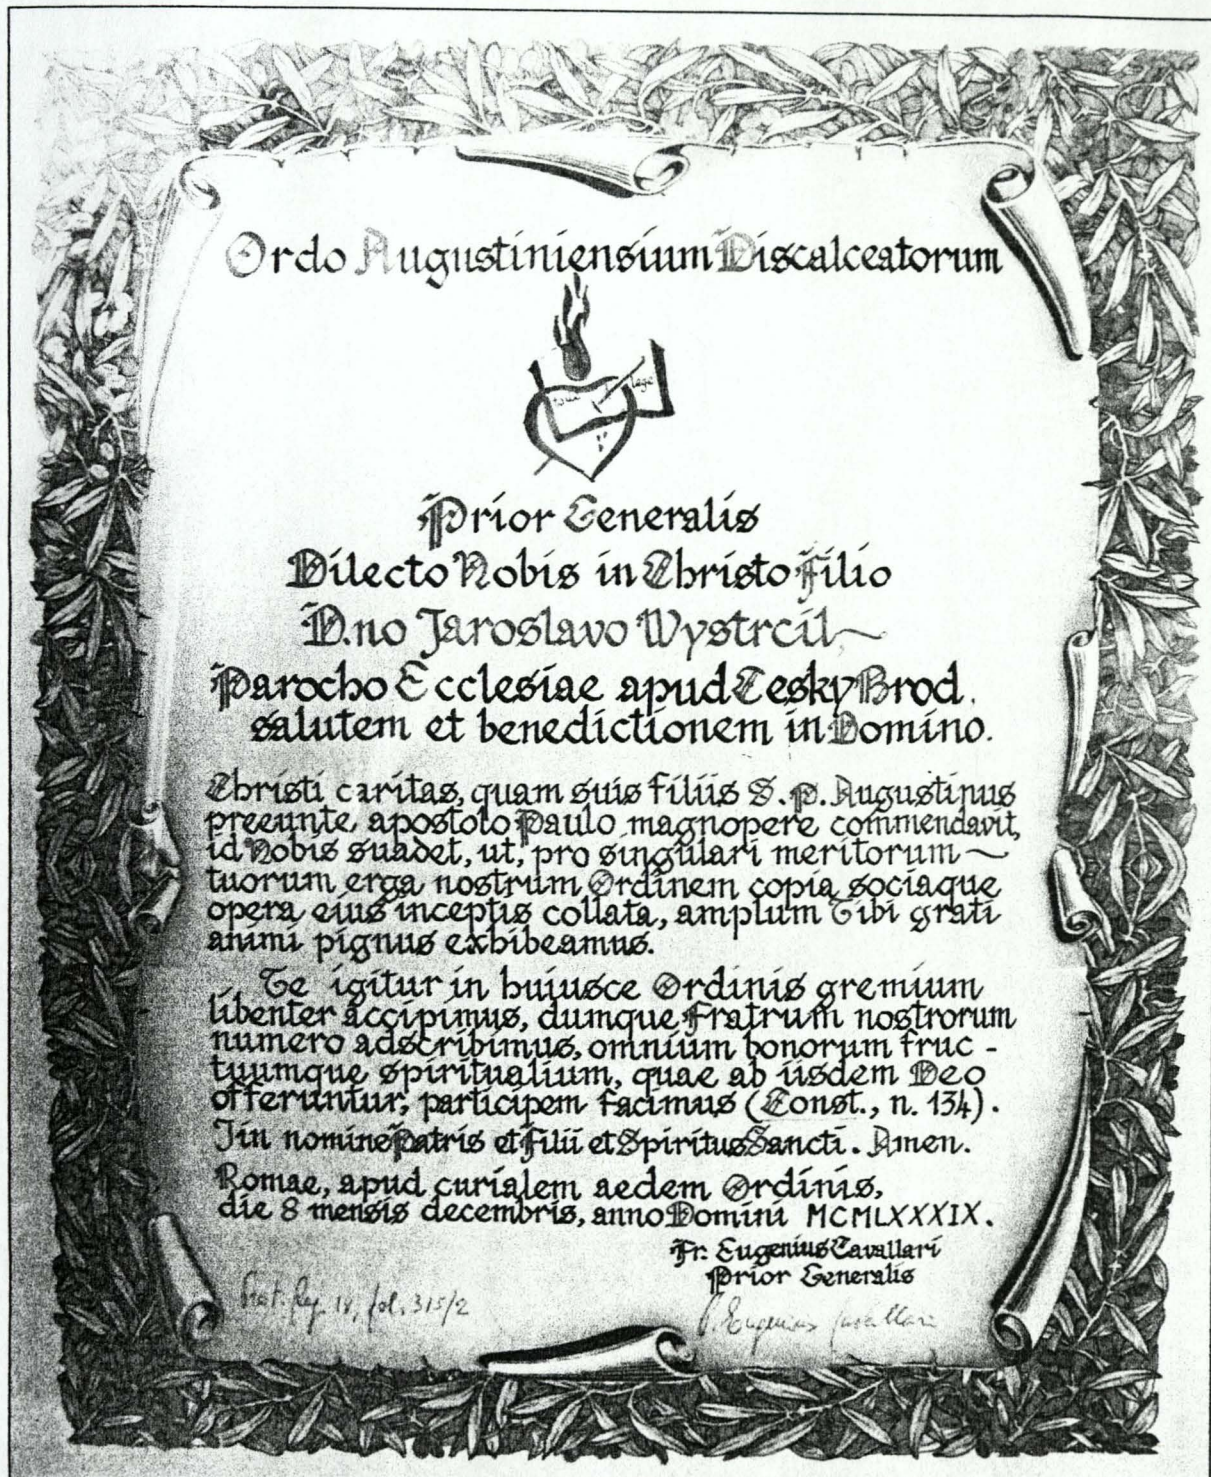 Ordo Augustiniensium Discalceatorum
lege
Prior Generalis
Dilecto Nobis in Christo Filio
D.no Jaroslavo Wystrcil
Parocho Ecclesiae apud Cesky Brod.
salutem et benedictionem in Domino.
Christi caritas, quam suis filiis S. P. Augustinus
preeunte apostolo Paulo magnopere commendavit,
id Nobis suadet, ut, pro singulari meritorum
tuorum erga nostrum Ordinem copia sociaque
opera eius inceptis collata, amplum Tibi grati
animi pignus exhibeamus.
Te igitur in huiusce Ordinis gremium
libenter accipimus, dumque Fratrum nostrorum
numero adscribimus, omnium bonorum fruc-
tuumque spiritualium, quae ab iisdem Deo
offeruntur, participem facimus (Const., n. 134).
Iin nomine Patris et Filii et Spiritus Sancti. Amen.
Romae, apud curialem aedem Ordinis,
die 8 mensis decembris, anno Domini MCMLXXXIX.
Fr. Eugenius Cavallari
Prior Generalis
Prot. Reg. IV, fol. 315/2
P. Eugenius Cavallari